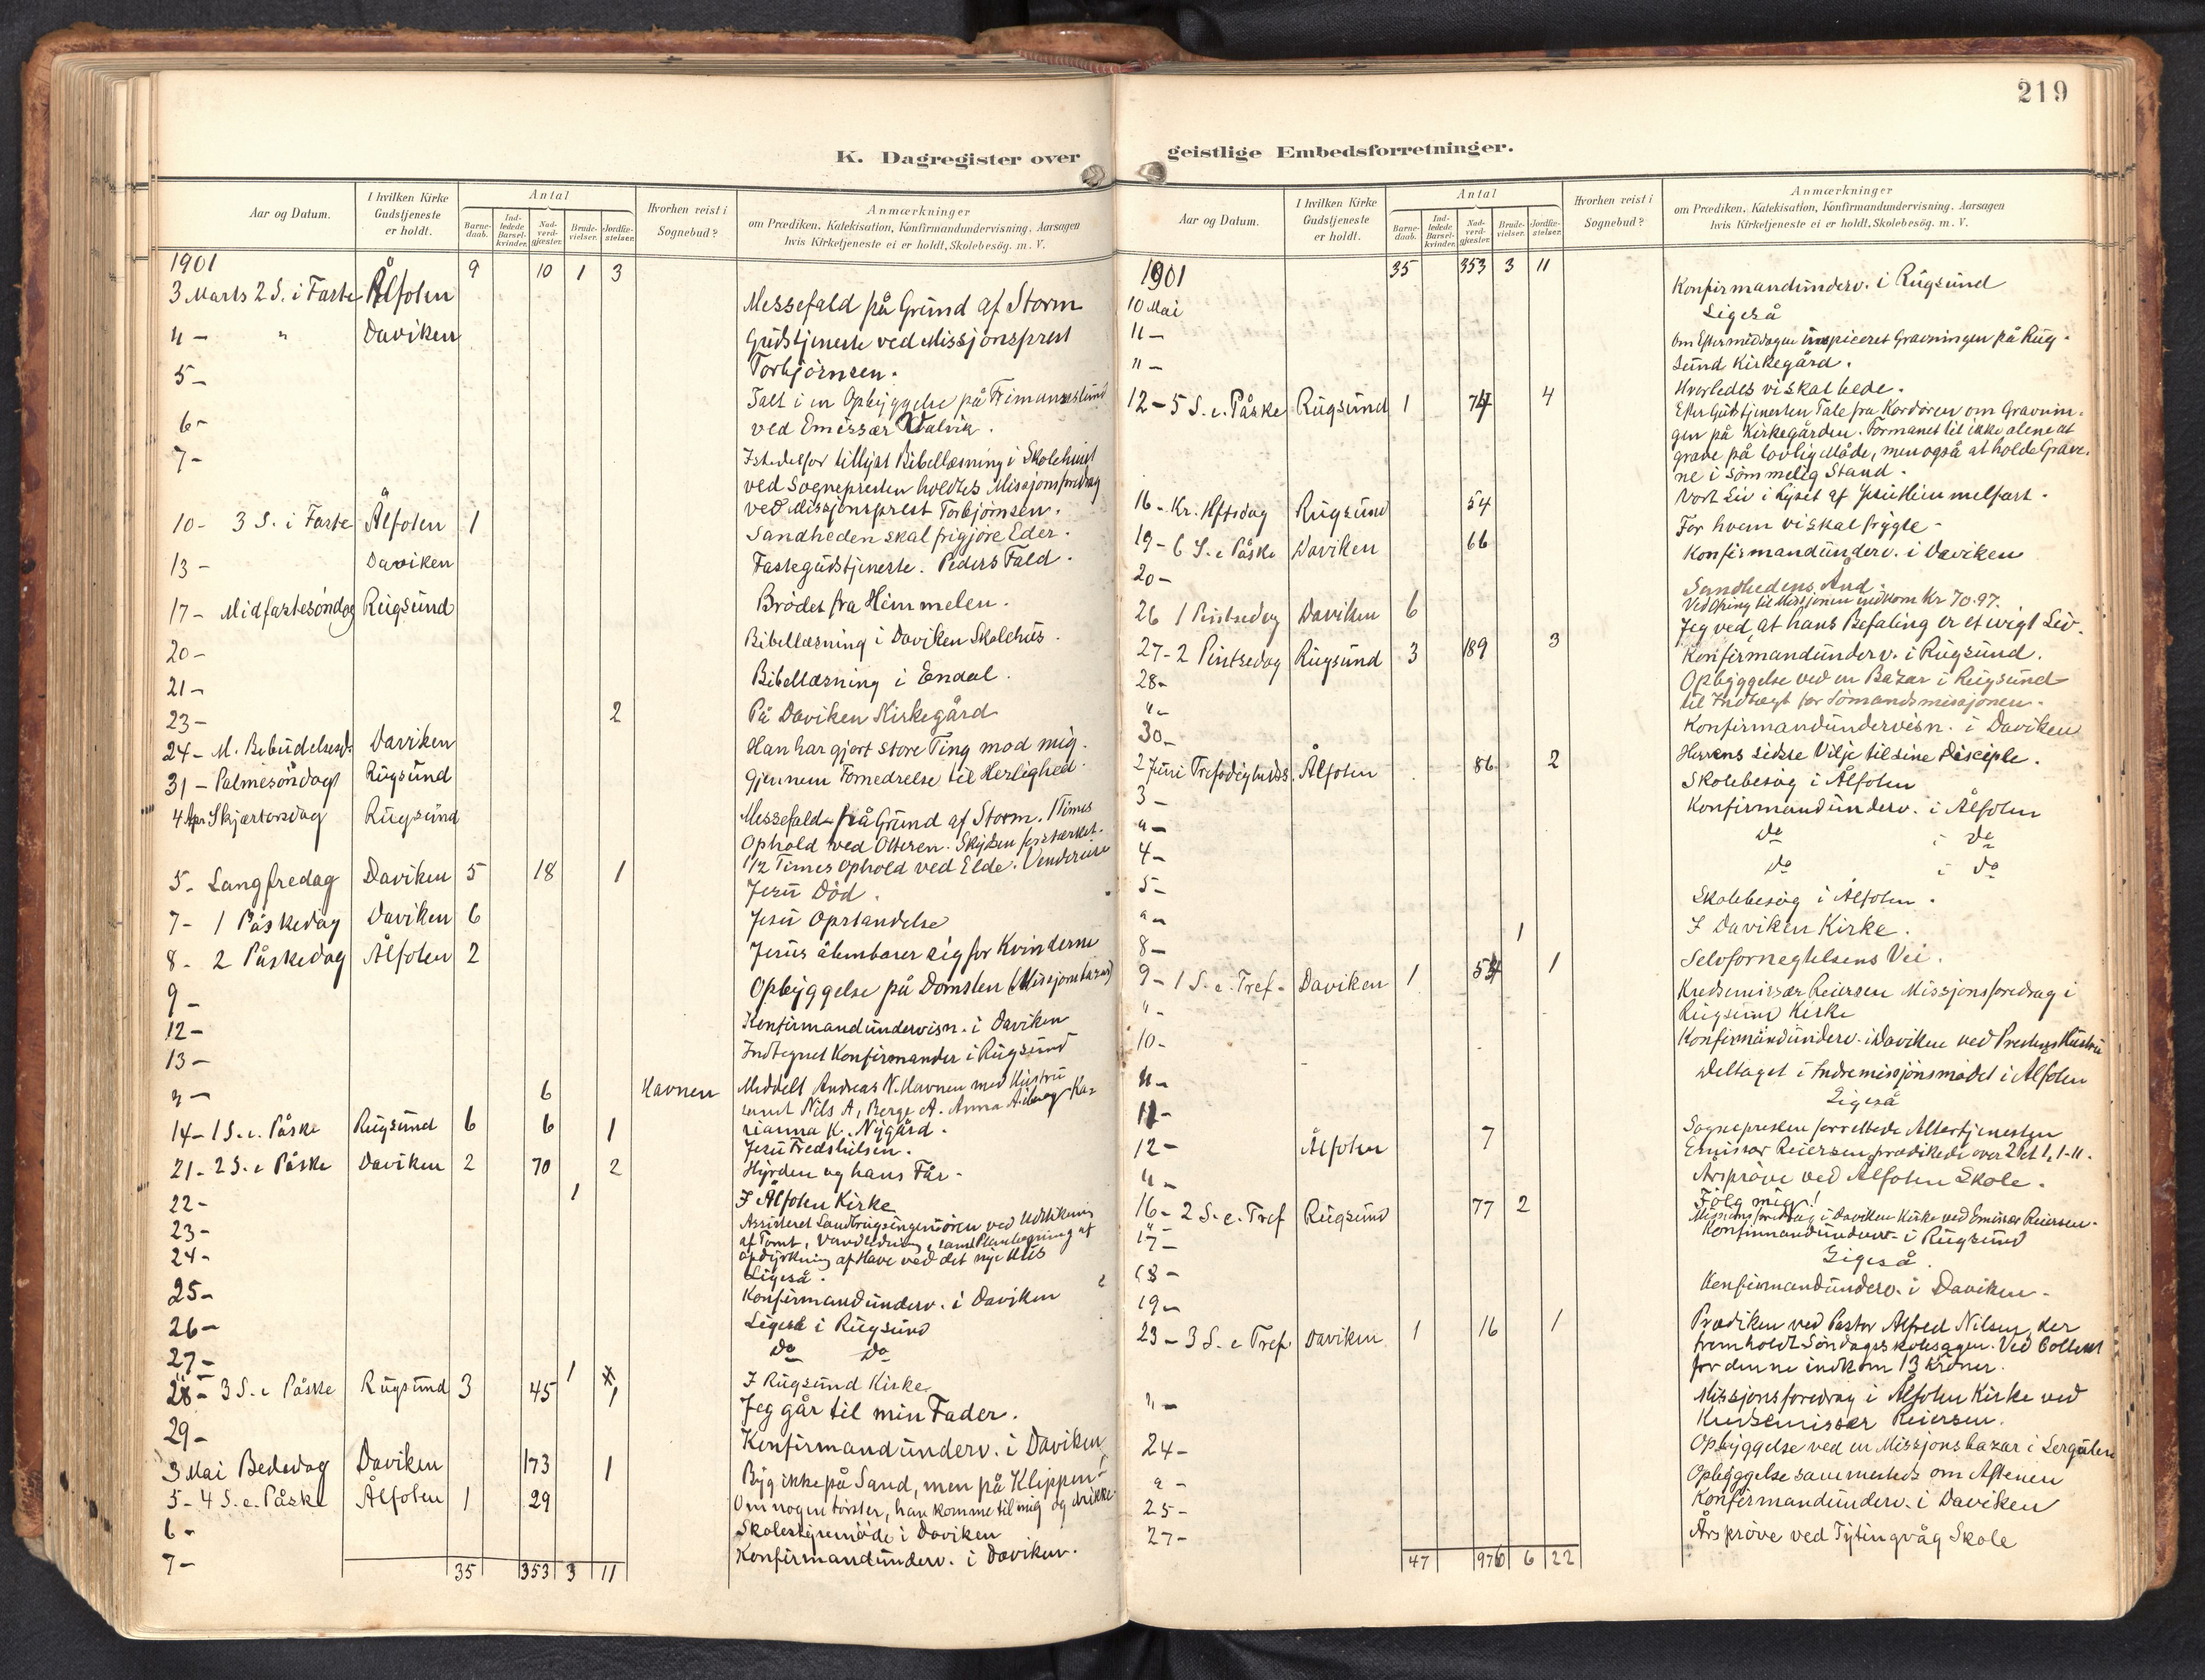 219
K. Dagregister over
geistlige Embedsforretninger.
Aar og Datum.
I hvilken Kirke
Gudstjeneste
er holdt.
Antal
Barne-
daab.
Ind-
ledede
Barsel-
kvinder.
Nad-
verd-
gjæster.
Brude-
vielser.
Jordfæ-
stelser.
Hvorhen reist i
Sognebud?
Anmærkninger
om Prædiken, Katekisation, Konfirmandundervisning, Aarsagen
hvis Kirketjeneste ei er holdt, Skolebesøg. m. V.
1901 9 10 1 3
3 Marts 2 S. i Faste Ålfoten Messefald på Grund af Storm
" - " Daviken Gudstjeneste ved Missjonsprest
Torbjörnsen.
5 - Talt i en Opbyggelse på
6 - ved Emissær Dalvik.
7 - Istedetfor tillyst Bibellæsning i Skolehuset
ved Sognepresten holdtes Missjonsforedrag
ved Missjonsprest Torbjörnsen.
10 - 3 S. i Faste Ålfoten 1 Sandheden skal frigjöre Eder.
13 - Daviken Fastegudstjeneste. Peders Fald.
17 - Midfastesöndag Rugsund Brödet fra Himmelen.
20 - Bibellæsning i Daviken Skolehus.
21 - Bibellæsning i Endal.
23 - 2 På Daviken Kirkegård
24 - M. Bebudelsesd. Daviken Han har gjort store Ting mod mig.
31 - Palmesöndag Rugsund Gjennem Fornedrelse til Herlighed.
4 Apr Skjærtorsdag Rugsund Messefald på Grund af Storm. 1 Times
Ophold ved Otteren. Skydsen forstærket.
1/2 Times Ophold ved Elde.
5 - Langfredag Daviken 5 18 1 Jesu Död.
7 - 1 Påskedag Daviken 6 Jesu Opstandelse
8 - 2 Påskedag Ålfoten 2 Jesus åbenbarer sig for Kvinderne
9 - Opbyggelse på Domsten (Missjonsbazar)
12 - Konfirmandundervisn. i Daviken
13 - Indtegnet Konfirmander i Rugsund
" - 6 Havnen Meddelt Andreas N. Havnen med Hustru
samt Nils A, Berge A. Anna
K. Nygård.
14 - 1 S. e. Påske Rugsund 6 6 1 Jesu Fredshilsen.
21 - 2 S. e Påske Daviken 2 70 2 Hyrden og hans Får.
22 - 1 I Ålfoten Kirke
23 - Assisteret Landbrugsingeniören ved Udstikning
24 - af Tomt, Vandledning, samt Planlægning af
opdyrkning af Have ved det nye Hus
Ligeså.
25 - Konfirmandunderv. i Daviken
26 - Ligeså i Rugsund
27 - Do Do
" - 1 I Rugsund Kirke.
28 - 3 S. e Påske Rugsund 3 45 1 Jeg går til min Fader.
29 - Konfirmandunderv. i Daviken
3 Mai Bededag Daviken 173 1 Byg ikke på Sand, men på Klippen!
5 - 4 S. e. Påske Ålfoten 1 29 Om nogen törster, han komme til mig og drikke.
6 - Skolestyremöde i Daviken
7 - Konfirmandunderv. i Daviken.
35 353 3 11
Aar og Datum.
I hvilken Kirke
Gudstjeneste
er holdt.
Antal
Barne-
daab.
Ind-
ledede
Barsel-
kvinder.
Nad-
verd-
gjæster.
Brude-
vielser.
Jordfæ-
stelser.
Hvorhen reist i
Sognebud?
Anmærkninger
om Prædiken, Katekisation, Konfirmandundervisning, Aarsagen
hvis Kirketjeneste ei er holdt, Skolebesög. m. V.
1901 35 353 3 11
10 Mai Konfirmandunderv. i Rugsund
11 - Ligeså
" - Om Eftermiddagen inspiceret Gravningen på Rug-
sund Kirkegård.
12 - 5 S. e. Påske Rugsund 1 74 4 Hvorledes vi skal bede.
Efter Gudstjenesten Tale fra Kordören om Gravnin-
gen på Kirkegården. Formanet til ikke alene at
grave på lovlig Måde, men også at holde Grave-
ne i sömmelig Stand.
16 - Kr. Hftsdag Rugsund 54 Vort Liv i Lyset af Jesu Himmelfart.
19 - 6 S. e Påske Daviken 66 For hvem vi skal frygte -
20 - Konfirmandunderv. i Daviken
26 1 Pintsedag Daviken 6 Sandhedens Ånd.
Ved Ofring til Missjonen indkom Kr 70.97.
27 - 2 Pintsedag Rugsund 3 189 3 Jeg ved, at hans Befaling er et evigt Liv.
28 - Konfirmandunderv. i Rugsund.
" - Opbyggelse ved en Bazar i Rugsund
til Indtægt for Sömandsmissjonen.
30 - Konfirmandundervisn. i Daviken
2 Juni Trefoldigheds. Ålfoten 86 2 Herrens sidste Vilje til sine Disciple.
3 - Skolebesög i Ålfoten
" - Konfirmandunderv. i Ålfoten
4 - Do i Do
5 - Do i Do
" - Skolebesög i Ålfoten.
8 - 1 I Daviken Kirke.
9 - 1 S. e. Tref - Daviken 1 54 1 Selvfornegtelsens Vei.
" - Kredsemissær Reiersen Missjonsforedrag i
Rugsund Kirke
10 - Konfirmandunderv. i Daviken ved Prestens Hustru
11 - Deltaget i Indremissjonsmödet i Ålfoten
12 - Ligeså
12 - Ålfoten 7 Sognepresten forrettede Altertjenesten
Emissær Reiersen prædikede over 2 Pet 1, 1-11.
" - Årspröve ved Ålfoten Skole.
16 - 2 S. e. Tref Rugsund 77 2 Fölg mig!
" - Missjonsforedrag i Daviken Kirke ved Emissær Reiersen.
17 - Konfirmandunderv. i Rugsund
18 - Ligeså.
19 - Konfirmandunderv. i Daviken -
23 - 3 S. e Tref Daviken 1 16 1 Prædiken ved Pastor Alfred Nilsen, der
fremholdt Söndagsskolesagen. Ved Collekt
for denne indkom 13 Kroner.
" - Missjonsforedrag i Ålfoten Kirke ved
Kredsemissær Reiersen.
24 - Opbyggelse ved en Missjonsbazar i
" - Opbyggelse sammesteds om Aftenen
25 - Konfirmandunderv. i Daviken
27 - Årspröve ved Tytingvåg Skole
47 976 6 22